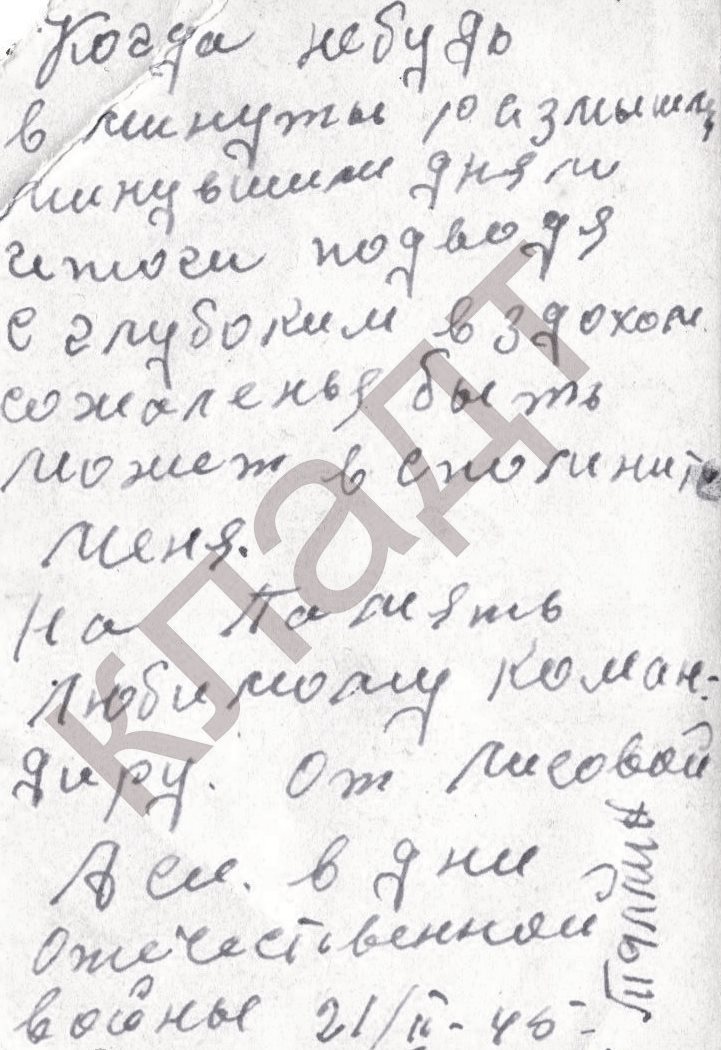 Когда небудь
в минуты размышл
минувшими днями
итоги подводя
с глубоким вздохом
сожаленья быть
может вспомнит
меня.
На Память
любимому коман-
диру. От Лисовой
Аси. в дни
отечественной
войны 21/II-45-
Таллин
кладт